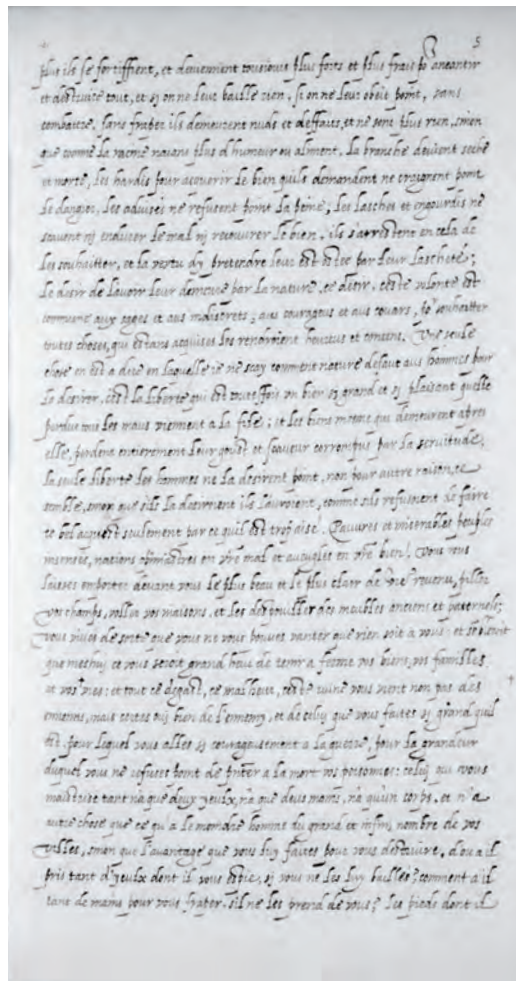 5
plus ils se fortiffient, et deviennent tousiours plus forts et plus frais po^r aneantir
et destruire tout, et si on ne leur baille rien, si on ne leur obeit point, sans
combattre, sans fraper ils demeurent nuds et deffaits, et ne sont plus rien, sinon
que comme la racine naians plus d humeur ou aliment, la branche devient seche
et morte. Les hardis pour acquerir le bien quils demandent ne craignent point
le dangier, les advises ne refusent point la peine; les lasches et engourdis ne
scavent ni endurer le mal ni recouvrer le bien. ils s'arrestent en cela de
les souhaitter, et la vertu d'y pretendre leur est ostee par leur laschete;
le desir de l'avoir leur demeure par la nature. ce desir, ceste volonte est
commune aux sages et aus indiscrets, aus courageus et aus couars, po^r souhaitter
toutes choses, qui estans acquises les rendroient heureus et contens. Une seule
chose en est a dire en laquelle ie ne scay comment nature defaut aus hommes pour
la desirer, c'est la liberte qui est toutesfois un bien si grand et si plaisant quelle
perdue tous les maus viennent a la file; et les biens mesme qui demeurent apres
elle, perdent entierement leur goust et scaveur corrompus par la servitude.
la seule liberte les hommes ne la desirent point, non pour autre raison, ce
semble, sinon que sils la desiroient ils lauroient, comme sils refusoient de faire
ce bel acquest seulement par ce quil est trop aise. Pauvres et miserables peuples
insensés, nations opiniastres en v^re mal et aveugles en v^re bien! vous vous
laisses emporter devant vous le plus beau et le plus clair de v^re revenu, piller
vos champs, voller vos maisons, et les despouiller des meubles anciens et paternels;
vous vives de sorte que vous ne vous pouves vanter que rien soit a vous; et sembleroit
que meshuy ce vous seroit grand heur de tenir a ferme vos biens, vos familles
et vos vies: et tout ce degast, ce malheur, ceste ruine vous vient non pas des
ennemis, mais certes oui bien de l'ennemy, et de celuy que vous faites si grand quil
est, pour lequel vous alles si courageusement a la guerre, pour la grandeur
duquel vous ne refuses point de presenter a la mort vos personnes: celuy qui vous
maistrise tant n'a que deux yeulx, n'a que deus mains, n'a qu'un corps, et n'a
autre chose que ce qu'a le moindre homme du grand et infini nombre de vos
villes, sinon que l'avantage que vous luy faites pour vous destruire. d'ou a il
pris tant d'yeulx dont il vous espie, si vous ne les luy bailles? comment a il
tant de mains pour vous fraper, s'il ne les prend de vous? Les pieds dont il